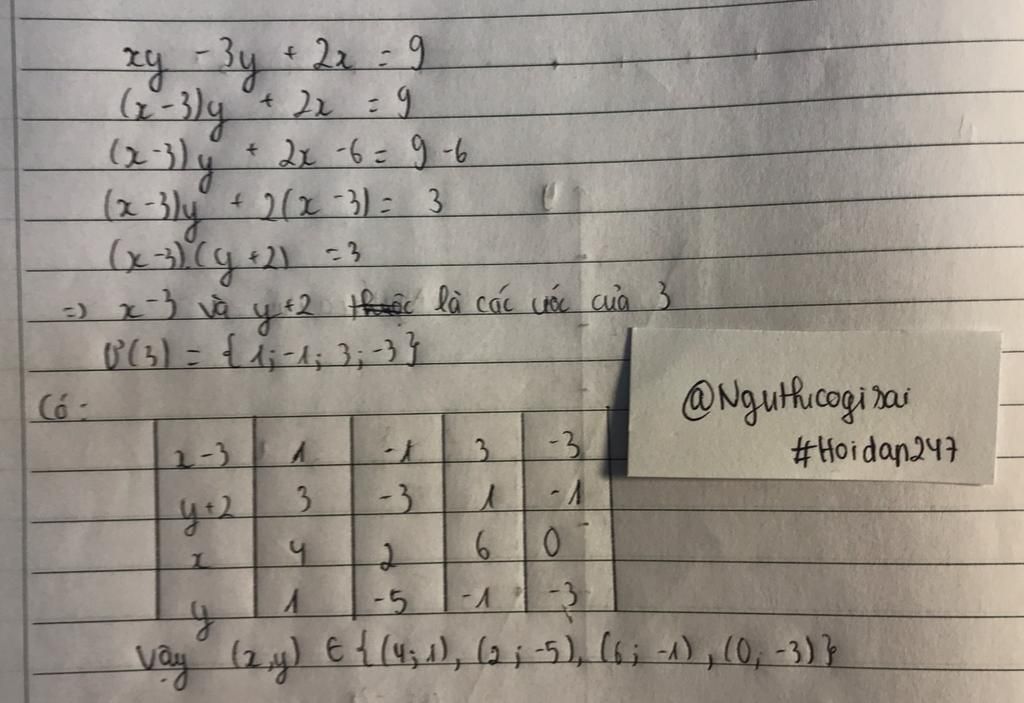 xy - 3y + 2x = 9
(x-3)y + 2x = 9
(x-3)y + 2x - 6 = 9 - 6
(x-3)y + 2(x-3) = 3
(x-3).(y+2) = 3
=> x-3 và y+2 là các ước của 3
Ư(3) = {1;-1; 3;-3}
Có:
x-3 1 -1 3 -3
y+2 3 -3 1 -1
x 4 2 6 0
y 1 -5 -1 -3
Vậy (x,y) ∈ {(4;1), (2;-5), (6;-1), (0;-3)}
@Nguthicogisai
#Hoidap247